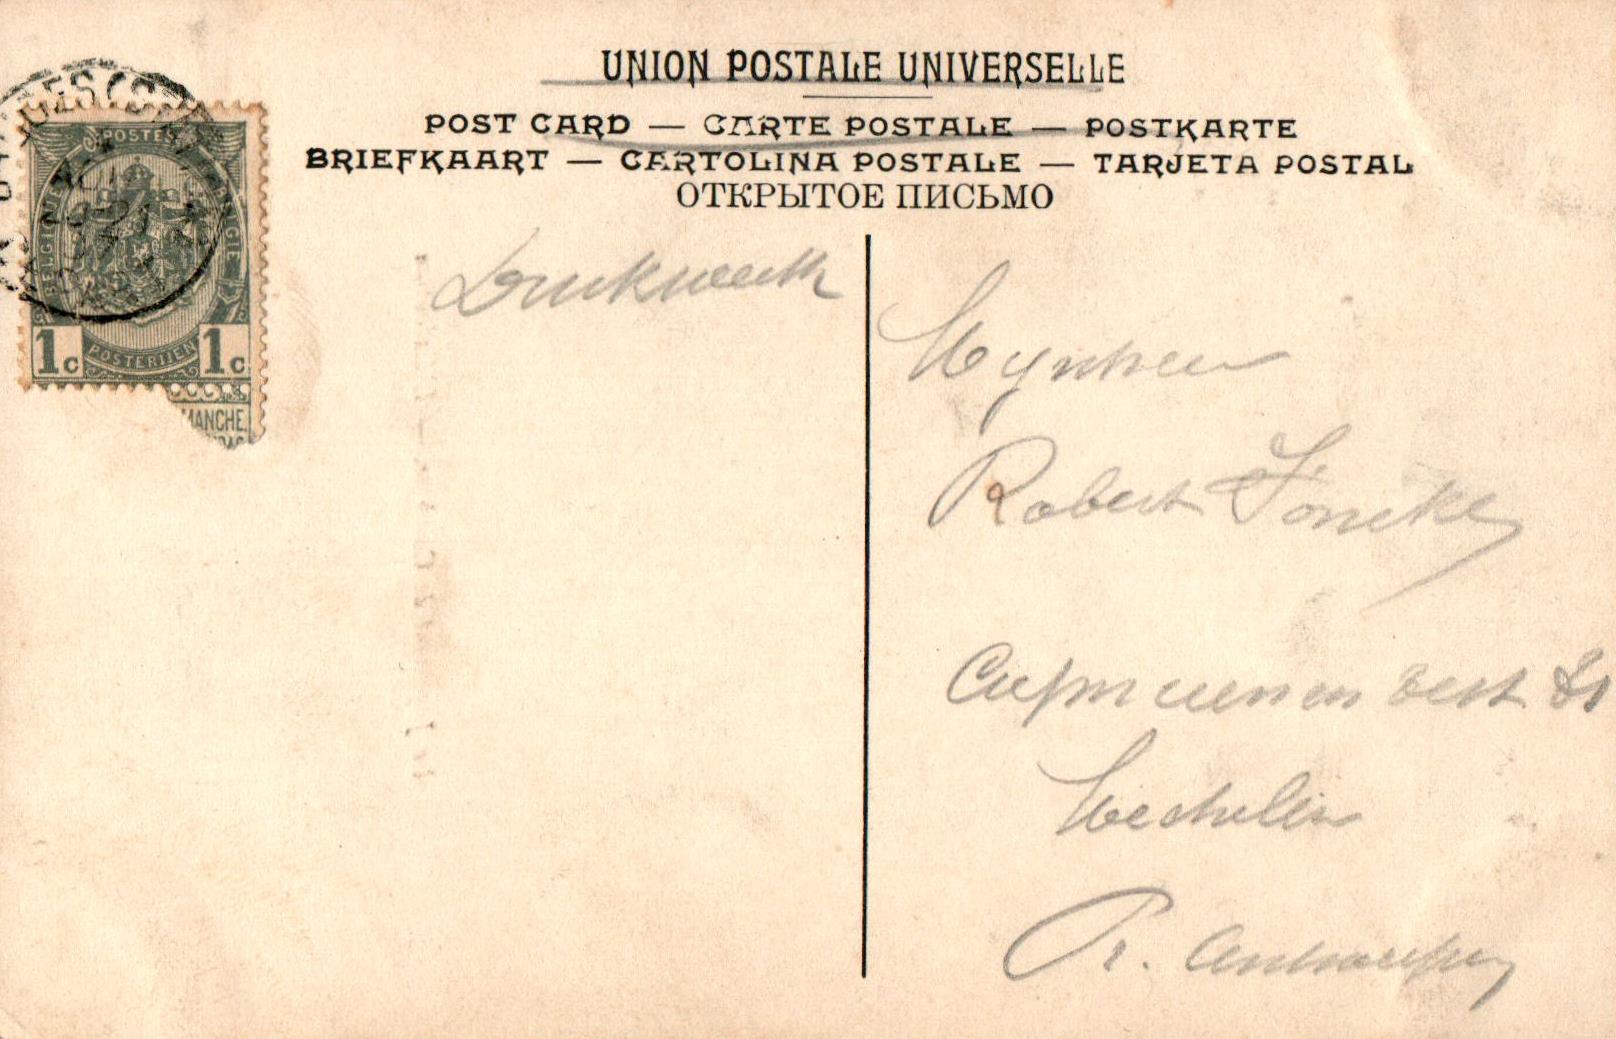 UNION POSTALE UNIVERSELLE
POST CARD — CARTE POSTALE — POSTKARTE
BRIEFKAART — CARTOLINA POSTALE — TARJETA POSTAL
ОТКРЫТОЕ ПИСЬМО
POSTES
BELGIQUE BELGIE
1c POSTERIJEN 1c
MANCHE
Drukwerk
Mynheer
Robert
Mechelen
P. Antwerpen